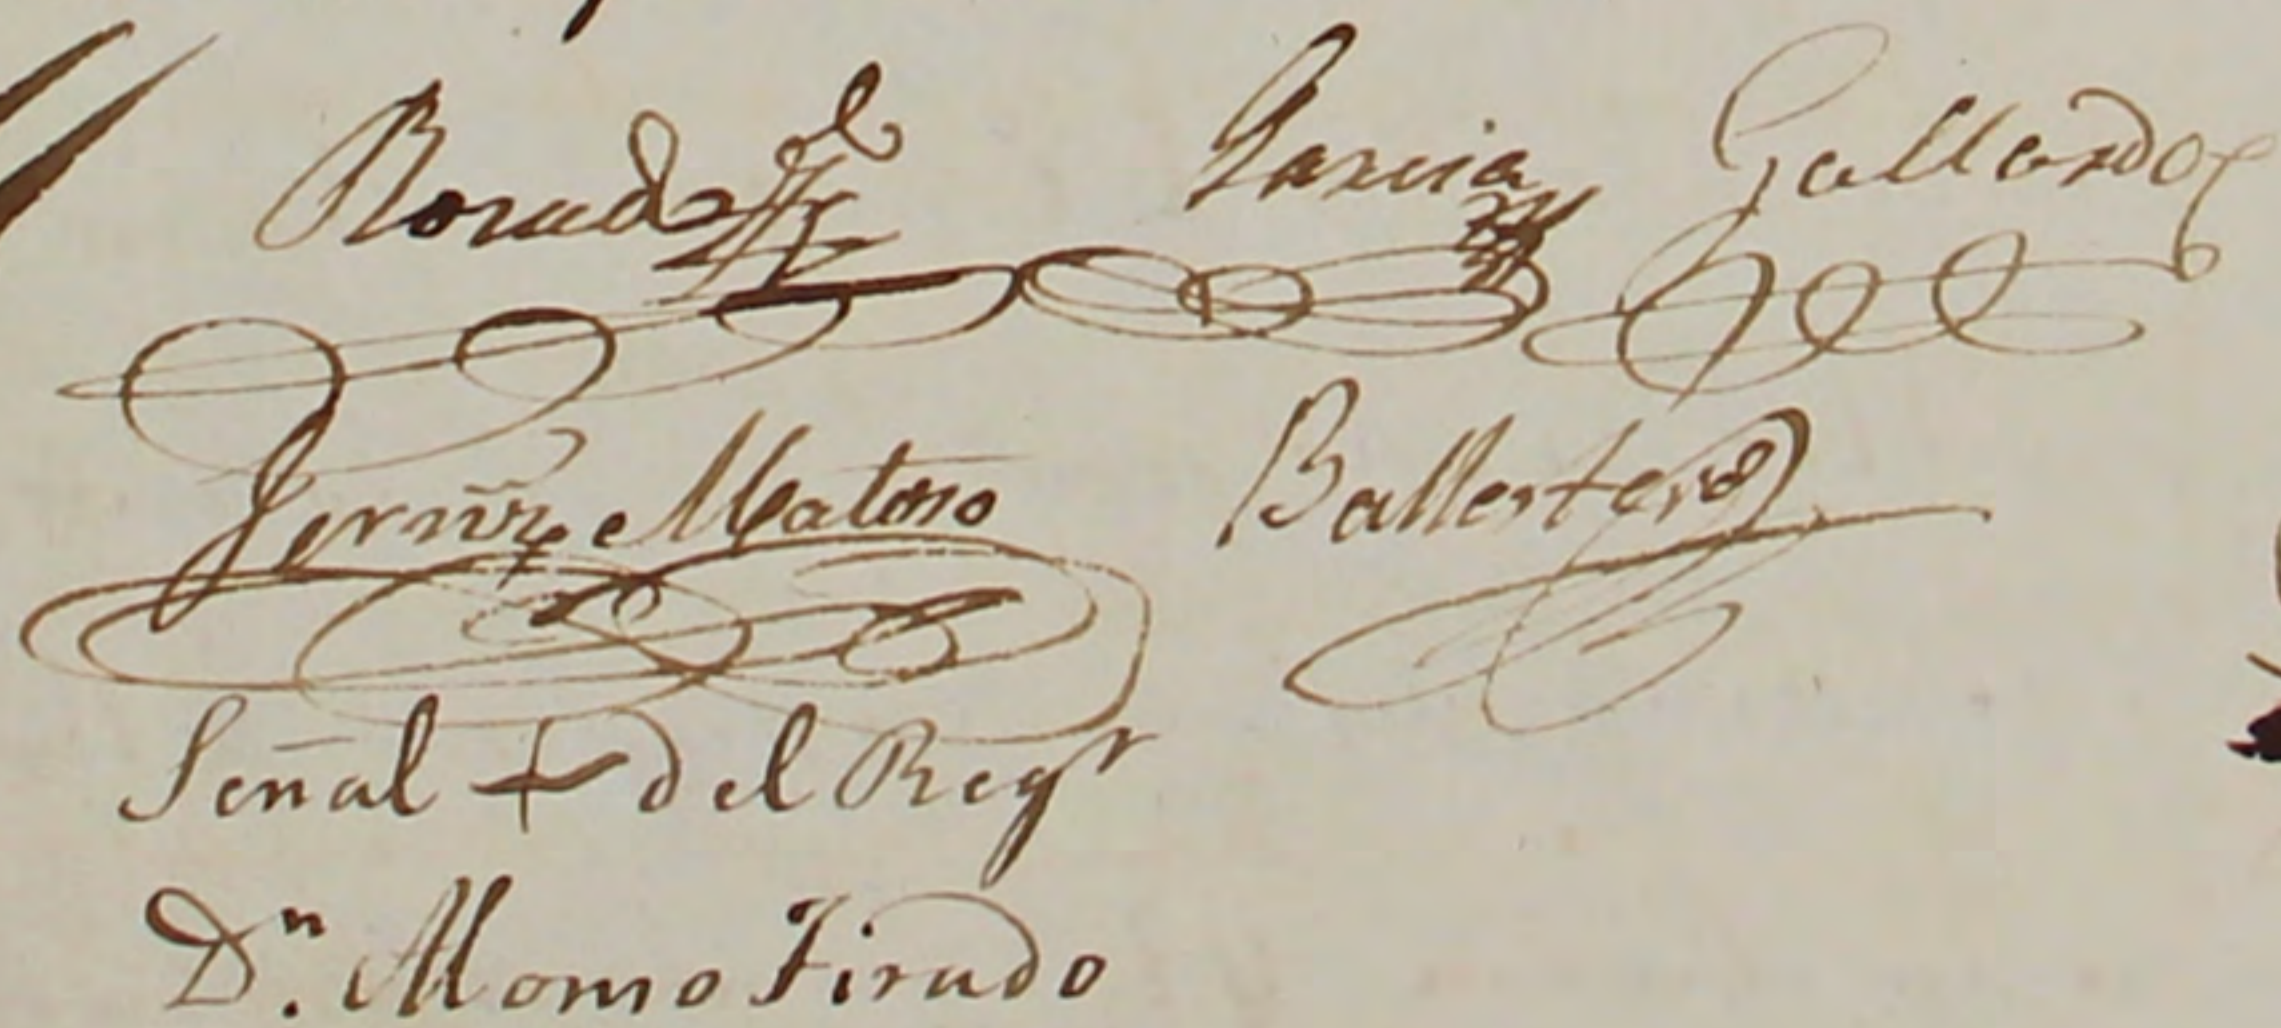 Garcia Gallardo
Fernñz Matoso Ballesteros
Señal + del Regr
Dn. Alonso Tirado